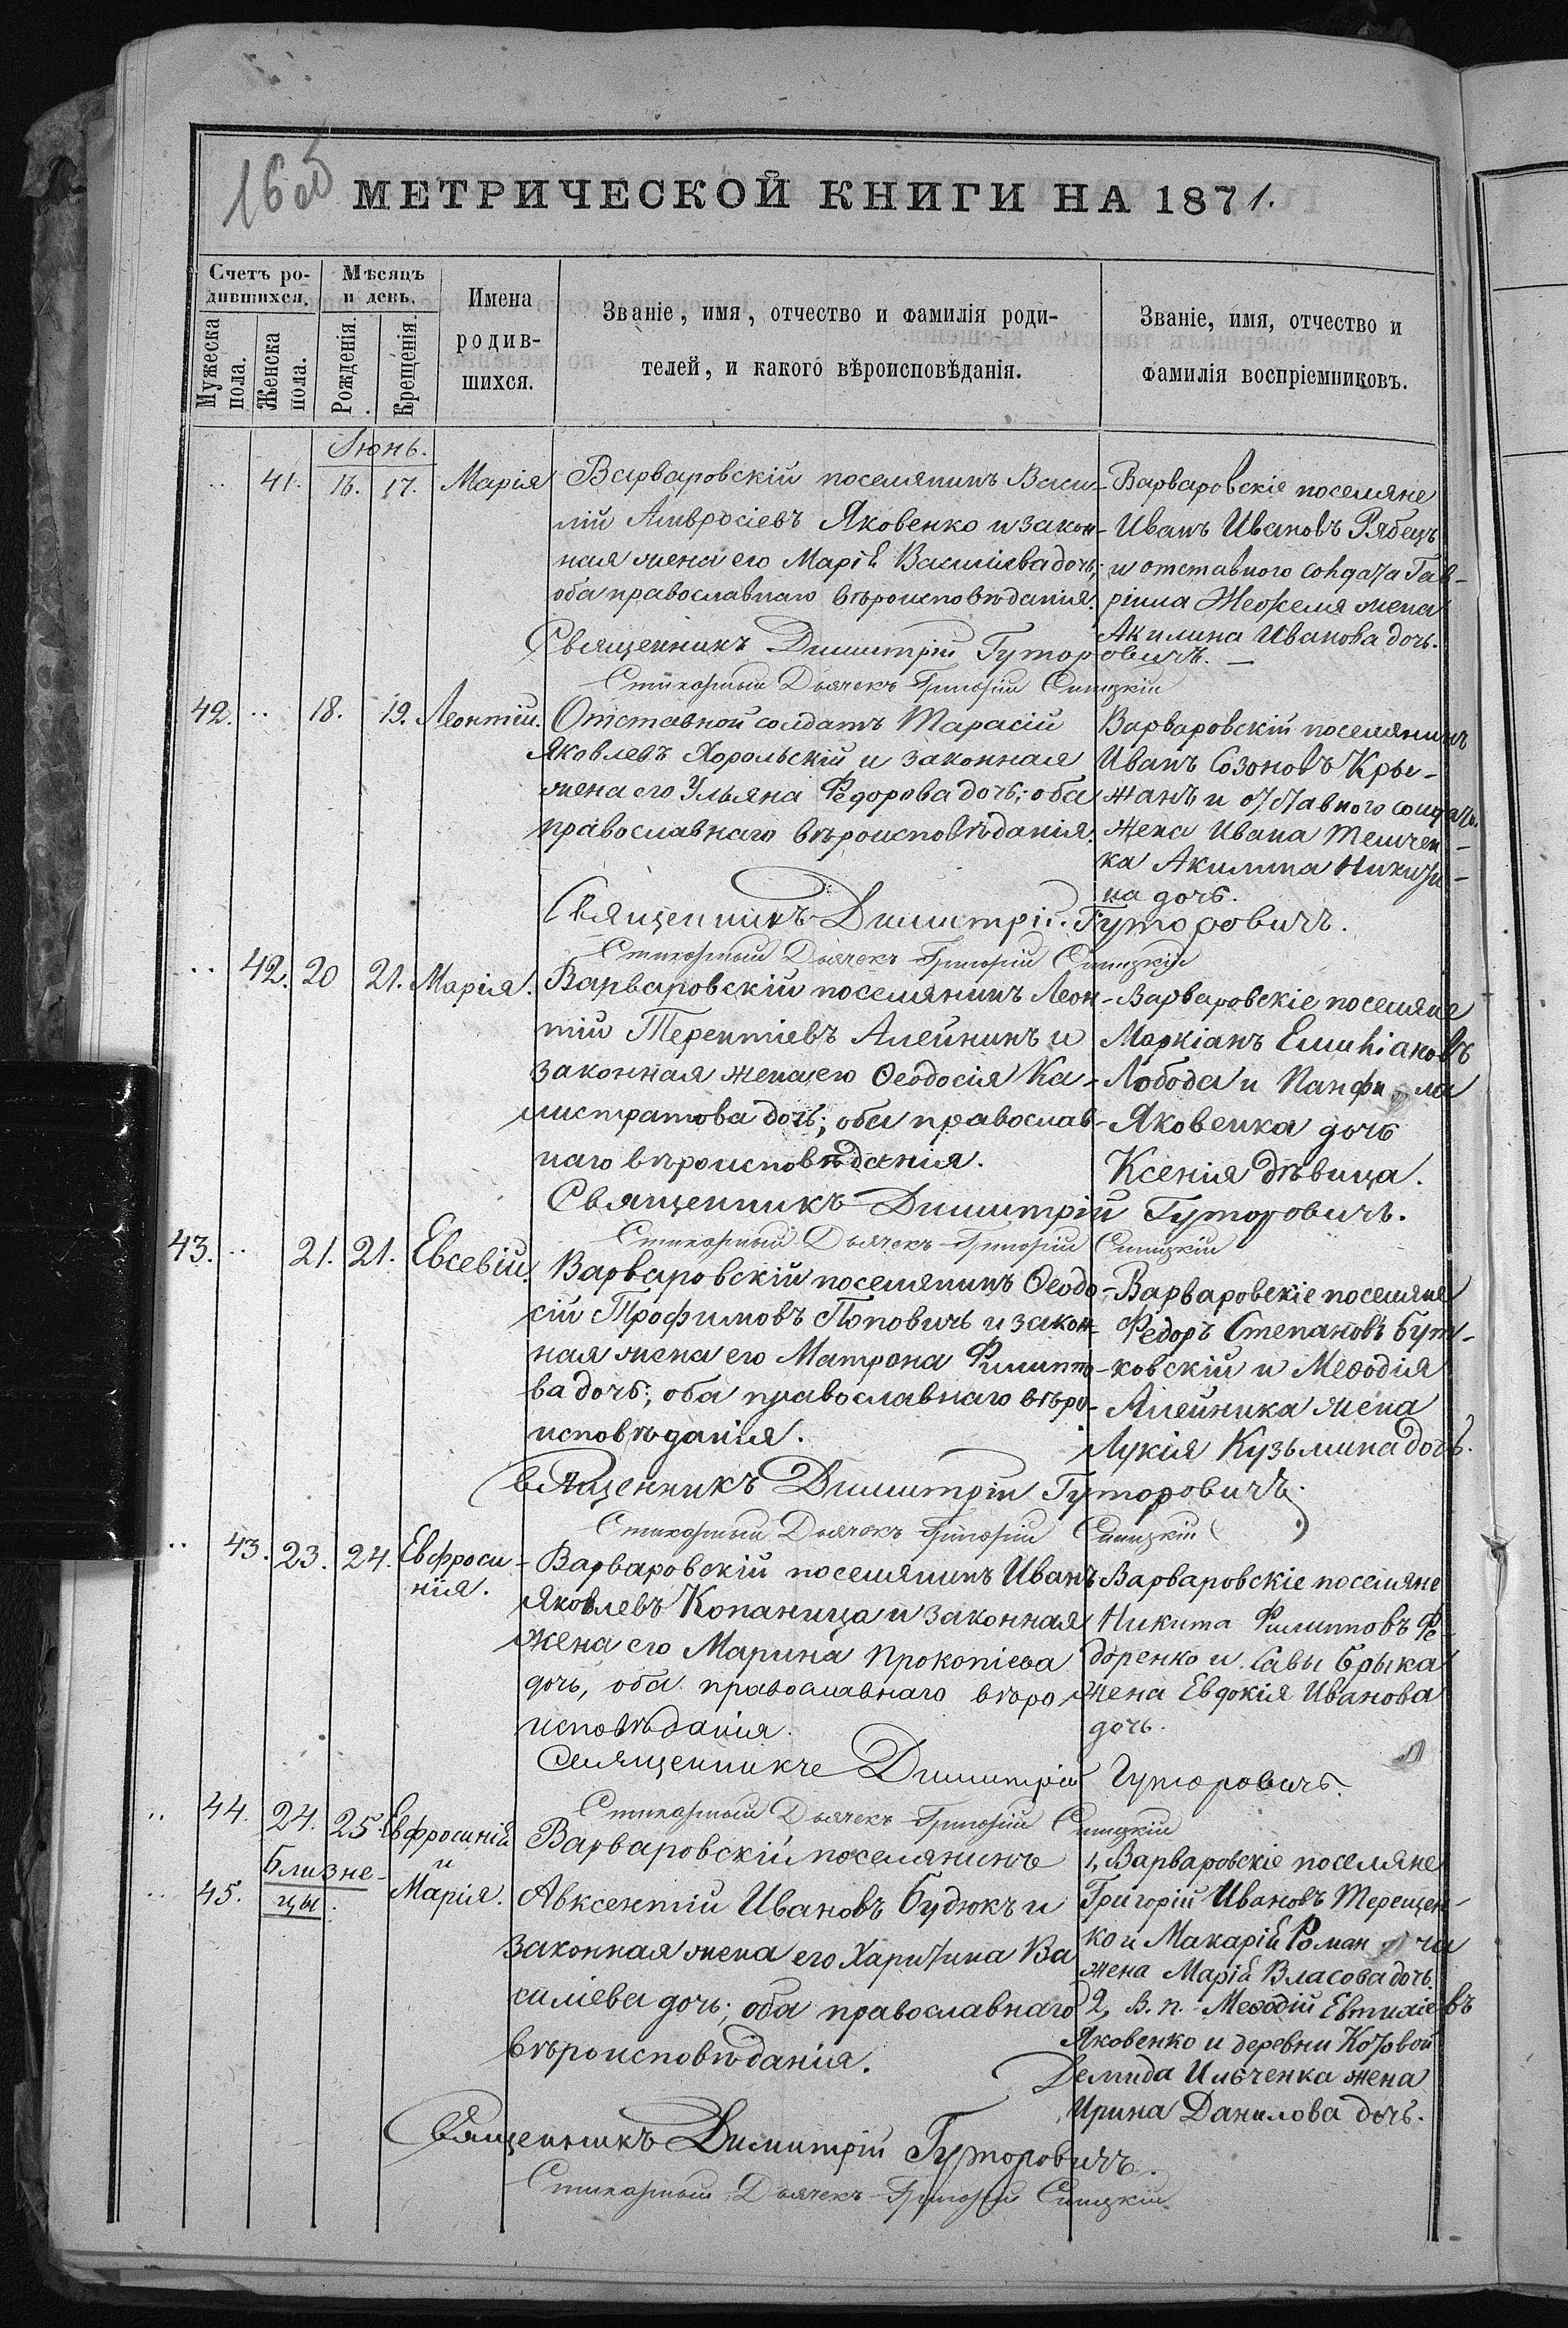 16об
МЕТРИЧЕСКОЙ КНИГИ НА 1871.
Счетъ ро-
дившихся.
Мѣсяцъ
и день.
Мужеска
пола.
Женска
пола.
Рожденія.
Крещенія.
Имена
родив-
шихся.
Званіе, имя, отчество и фамилія роди-
телей, и какого вѣроисповѣданія.
Званіе, имя, отчество и
фамилія воспріемниковъ.
Іюнь.
.. 41. 16. 17. Марія
Варваровскій поселянинъ Васи-
лій Амвросіевъ Яковенко и закон-
ная жена его Марія Василіева дочь;
оба православнаго вѣроисповѣданія.
Варваровскіе поселяне
Иванъ Ивановъ Рябецъ
и отставного солдата Гав-
ріила жена
Акилина Иванова дочь.
Священникъ Димитрій Гуторовичъ. —
Стихарный Дьячекъ Григорій Синицкій
42. .. 18. 19. Леонтій.
Отставной солдатъ Тарасій
Яковлевъ Хорольскій и законная
жена его Ульяна Федорова дочь; оба
православнаго вѣроисповѣданія.
Варваровскій поселянинъ
Иванъ Созоновъ Кры-
жанъ и отставного солдата
жена Ивана Темчен-
ка Акилина Никити-
на дочь.
Священникъ Димитрій Гуторовичъ.
Стихарный Дьячекъ Григорій Синицкій
.. 42. 20 21. Марія.
Варваровскій поселянинъ Леон-
тій Терентіевъ Алейникъ и
законная жена его Ѳеодосія Ка-
листратова дочь; оба православ-
наго вѣроисповѣданія.
Варваровскіе поселяне
Маркіанъ Емиліановъ
Лобода и Панфила
Яковенка дочь
Ксенія дѣвица.
Священникъ Димитрій Гуторовичъ.
Стихарный Дьячекъ Григорій Синицкій
43. .. 21. 21. Евсевій.
Варваровскій поселянинъ Ѳеодо-
сій Трофимовъ Поповичъ и закон-
ная жена его Матрона Филиппо-
ва дочь; оба православнаго вѣро-
исповѣданія.
Варваровскіе поселяне
Федоръ Степановъ Бут-
ковскій и Меѳодія
Алейника жена
Лукія Кузьмина дочь.
Священникъ Димитрій Гуторовичъ.
Стихарный Дьячекъ Григорій Синицкій
.. 43. 23. 24. Евфроси-
нія.
Варваровскій поселянинъ Иванъ
Яковлевъ Копаница и законная
жена его Марина Прокопіева
дочь, оба православнаго вѣро
исповѣданія.
Варваровскіе поселяне
Никита Филипповъ Фе-
доренко и Савы Брыка
жена Евдокія Иванова
дочь.
Священникъ Димитрій Гуторовичъ.
Стихарный Дьячекъ Григорій Синицкій
.. 44. 24. 25. Евфросинія
и
Близне-
цы.
.. 45. Марія.
Варваровскій поселянинъ
Авксентій Ивановъ Будюкъ и
законная жена его Харитина Ва
силіева дочь; оба православнаго
вѣроисповѣданія.
1, Варваровскіе поселяне
Григорій Ивановъ Терещен-
ко и Макарія
жена Марія Власова дочь.
2, В. п. Меѳодій Евтихіевъ
Яковенко и деревни Котовой
Демида Ильченка жена
Ирина Данилова дочь.
Священникъ Димитрій Гуторовичъ.
Стихарный Дьячекъ Григорій Синицкій